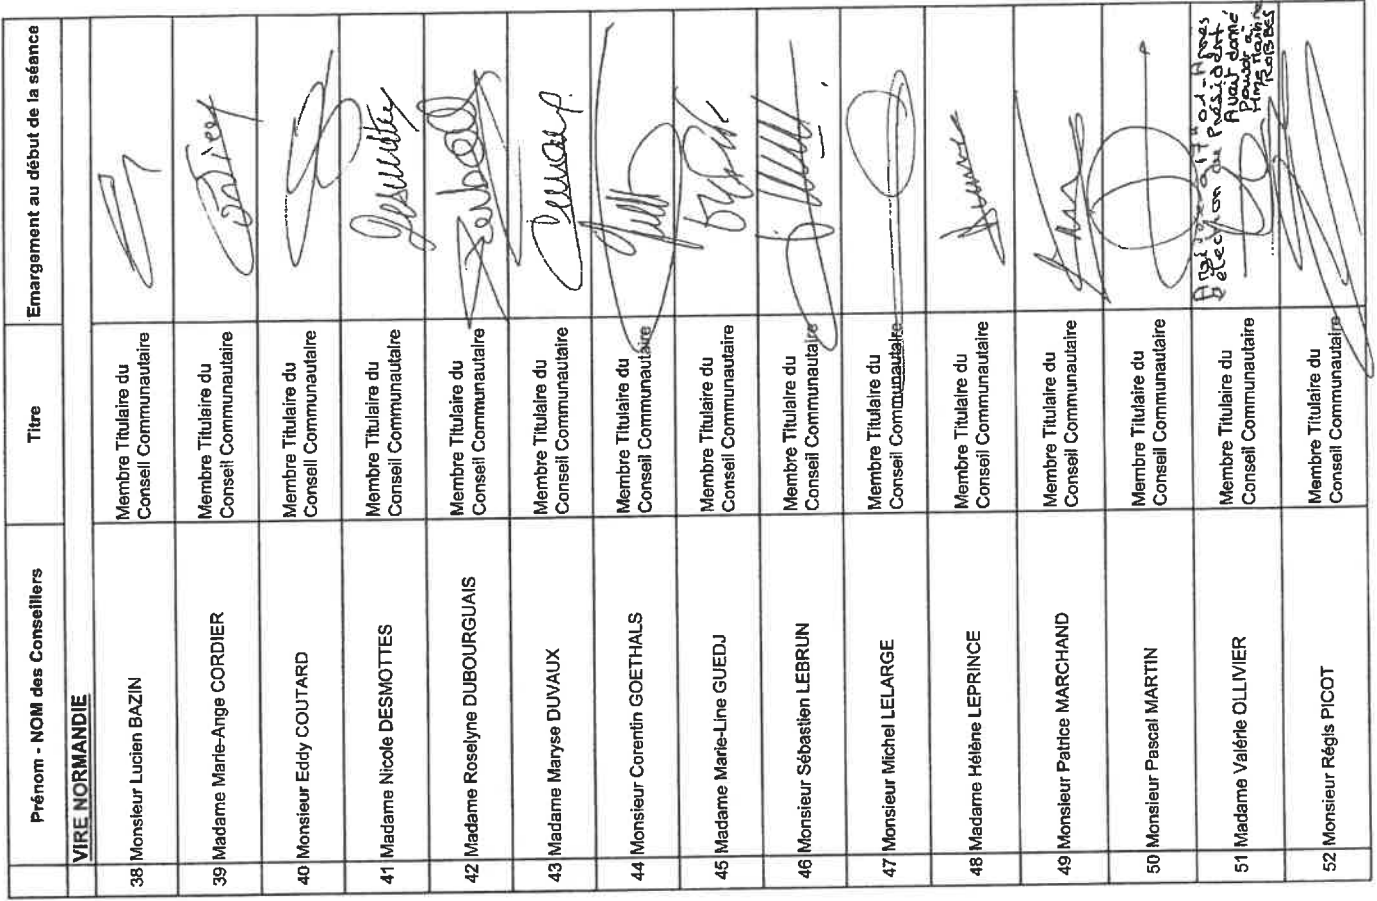 Prénom - NOM des Conseillers Titre Emargement au début de la séance
VIRE NORMANDIE
38 Monsieur Lucien BAZIN Membre Titulaire du
Conseil Communautaire
39 Madame Marie-Ange CORDIER Membre Titulaire du
Conseil Communautaire
40 Monsieur Eddy COUTARD Membre Titulaire du
Conseil Communautaire
41 Madame Nicole DESMOTTES Membre Titulaire du
Conseil Communautaire
42 Madame Roselyne DUBOURGUAIS Membre Titulaire du
Conseil Communautaire
43 Madame Maryse DUVAUX Membre Titulaire du
Conseil Communautaire
44 Monsieur Corentin GOETHALS Membre Titulaire du
Conseil Communautaire
45 Madame Marie-Line GUEDJ Membre Titulaire du
Conseil Communautaire
46 Monsieur Sébastien LEBRUN Membre Titulaire du
Conseil Communautaire
47 Monsieur Michel LELARGE Membre Titulaire du
Conseil Communautaire
48 Madame Hélène LEPRINCE Membre Titulaire du
Conseil Communautaire
49 Monsieur Patrice MARCHAND Membre Titulaire du
Conseil Communautaire
50 Monsieur Pascal MARTIN Membre Titulaire du
Conseil Communautaire
51 Madame Valérie OLLIVIER Membre Titulaire du
Conseil Communautaire
à 17h01-Après
élection du Président
Avait donné
Pouvoir à
ROBBES
52 Monsieur Régis PICOT Membre Titulaire du
Conseil Communautaire